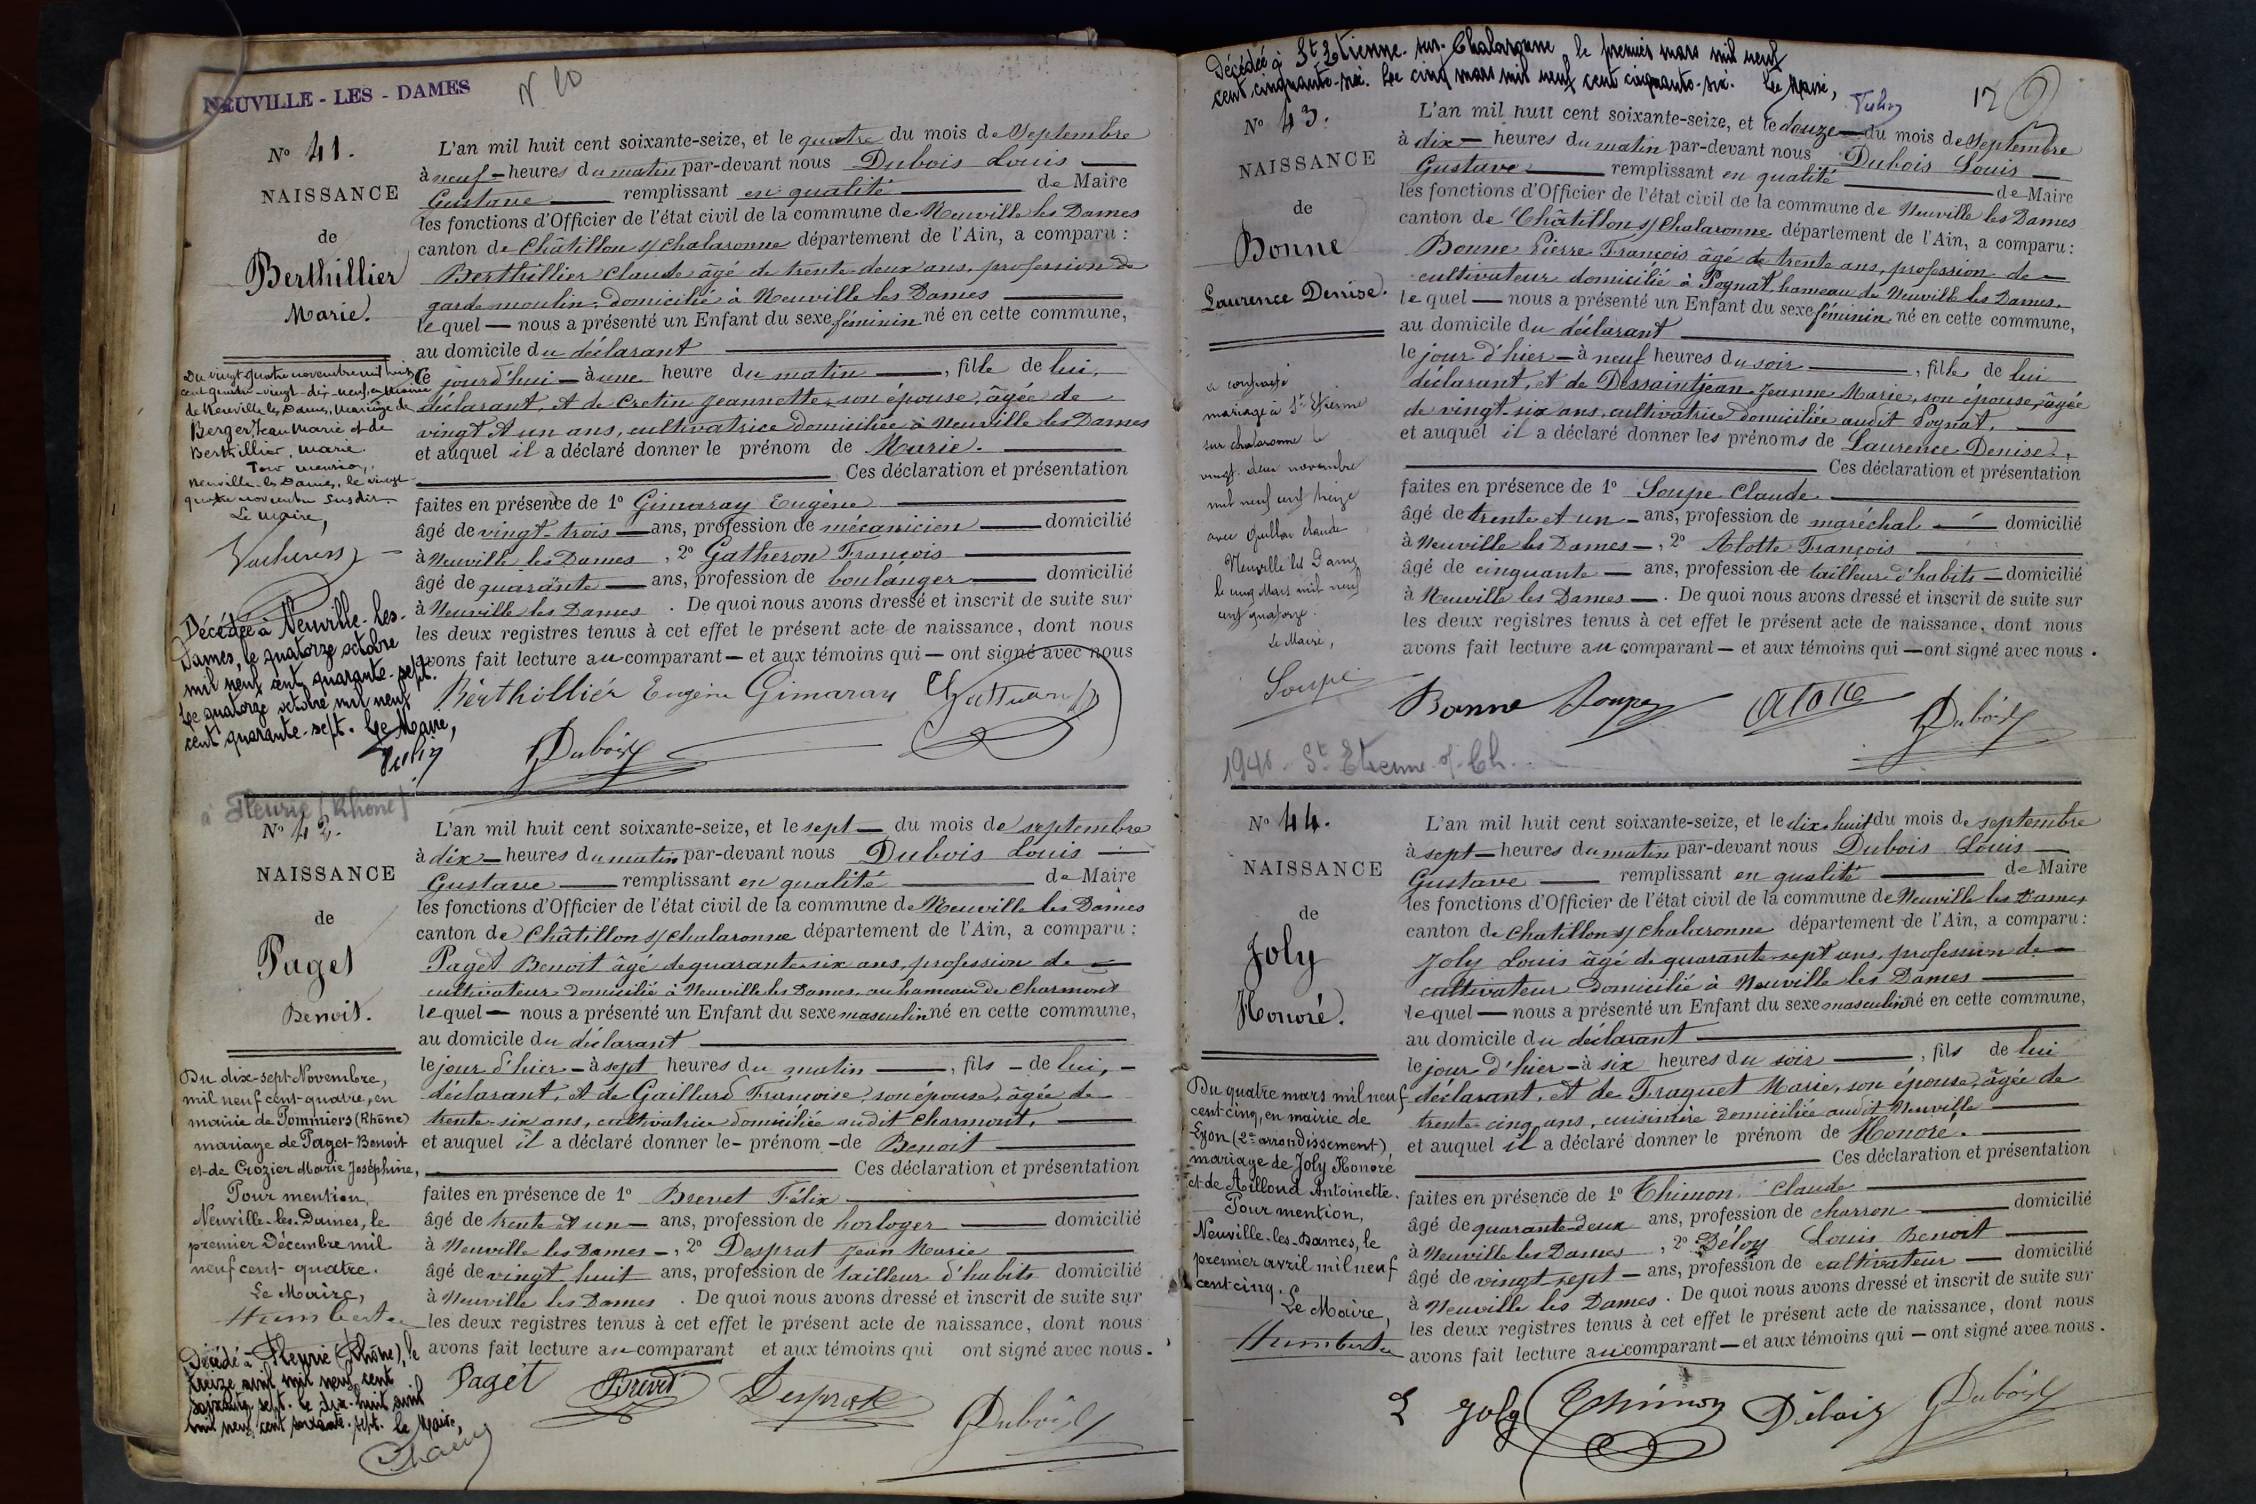 NEUVILLE - LES - DAMES
N. 10
Nº 41.
NAISSANCE
de
Berthillier
Marie.
Du vingt quatre novembre mil huit
cent quatre-vingt-dix-neuf, en Mairie
de Neuville les Dames, Mariage de
Berger Jean Marie et de
Berthillier, Marie.
Pour mention,
Neuville-les-Dames, le vingt-
quatre novembre susdit.
Le Maire,
Décédée à Neuville-les-
Dames, le quatorze octobre
mil neuf cent quarante-sept.
Le quatorze octobre mil neuf
cent quarante-sept. Le Maire,
L'an mil huit cent soixante-seize, et le quatre du mois de Septembre
à neuf — heures du matin par-devant nous Dubois Louis —
Gustave — remplissant en qualité — de Maire
les fonctions d'Officier de l'état civil de la commune de Neuville les Dames
canton de Châtillon s/ Chalaronne département de l'Ain, a comparu :
Berthillier Claude âgé de trente-deux ans, profession de
garde moulin, domicilié à Neuville les Dames —
lequel — nous a présenté un Enfant du sexe féminin né en cette commune,
au domicile du déclarant —
Ce jourd'hui — à une heure du matin —, fille de lui,
déclarant, et de Cretin Jeannette, son épouse, âgée de
vingt et un ans, cultivatrice domiciliée à Neuville les Dames
et auquel il a déclaré donner le prénom de Marie. —
— Ces déclaration et présentation
faites en présence de 1º Gimaray Eugène —
âgé de vingt-trois — ans, profession de mécanicien — domicilié
à Neuville les Dames, 2º Gatheron François —
âgé de quarante — ans, profession de boulanger — domicilié
à Neuville les Dames . De quoi nous avons dressé et inscrit de suite sur
les deux registres tenus à cet effet le présent acte de naissance, dont nous
avons fait lecture au comparant — et aux témoins qui — ont signé avec nous
Berthillier Eugène Gimaray
Dubois
à Fleurie (Rhône)
Nº 42.
NAISSANCE
de
Paget
Benoit.
Du dix-sept Novembre,
mil neuf cent quatre, en
mairie de Pommiers (Rhône)
mariage de Paget Benoit
et de Crozier Marie Joséphine,
Pour mention,
Neuville-les-Dames, le
premier Décembre mil
neuf cent quatre.
Le Maire,
Humbert
Décédé à Fleurie (Rhône), le
treize avril mil neuf cent
soixante sept. Le dix-huit avril
mil neuf cent soixante-sept. Le Maire,
L'an mil huit cent soixante-seize, et le sept — du mois de septembre
à dix — heures du matin par-devant nous Dubois Louis —
Gustave — remplissant en qualité — de Maire
les fonctions d'Officier de l'état civil de la commune de Neuville les Dames
canton de Châtillon s/ Chalaronne département de l'Ain, a comparu :
Paget Benoit âgé de quarante-six ans, profession de —
cultivateur domicilié à Neuville les Dames, au hameau de Charmont
lequel — nous a présenté un Enfant du sexe masculin né en cette commune,
au domicile du déclarant —
le jour d'hier — à sept heures du matin —, fils — de lui, —
déclarant, et de Gaillard Françoise, son épouse, âgée de
trente-six ans, cultivatrice domiciliée audit Charmont, —
et auquel il a déclaré donner le — prénom — de Benoit —
— Ces déclaration et présentation
faites en présence de 1º Brevet Félix —
âgé de trente et un — ans, profession de horloger — domicilié
à Neuville les Dames —, 2º Desprat Jean Marie —
âgé de vingt huit ans, profession de tailleur d'habits domicilié
à Neuville les Dames . De quoi nous avons dressé et inscrit de suite sur
les deux registres tenus à cet effet le présent acte de naissance, dont nous
avons fait lecture au comparant et aux témoins qui ont signé avec nous.
Paget Brevet Desprat
Dubois
Décédée à St Etienne-sur-Chalaronne, le premier mars mil neuf
cent cinquante-six. Le cinq mars mil neuf cent cinquante-six. Le Maire,
12
Nº 43.
NAISSANCE
de
Bonne
Laurence Denise.
a contracté
mariage à St Etienne
sur chalaronne le
vingt-deux novembre
mil neuf cent treize
avec Guillon claude
Neuville les Dames
le cinq Mars mil neuf
cent quatorze.
Le Maire,
Soupe
L'an mil huit cent soixante-seize, et le douze — du mois de Septembre
à dix — heures du matin par-devant nous Dubois Louis —
Gustave — remplissant en qualité — de Maire
les fonctions d'Officier de l'état civil de la commune de Neuville les Dames
canton de Châtillon s/ Chalaronne département de l'Ain, a comparu :
Bonne Pierre François âgé de trente ans, profession de —
cultivateur domicilié à Pognat, hameau de Neuville les Dames.
lequel — nous a présenté un Enfant du sexe féminin né en cette commune,
au domicile du déclarant —
le jour d'hier — à neuf heures du soir —, fille de lui
déclarant, et de Dessaintjean Jeanne Marie, son épouse, âgée
de vingt-six ans, cultivatrice domiciliée audit Pognat, —
et auquel il a déclaré donner les prénoms de Laurence Denise.
— Ces déclaration et présentation
faites en présence de 1º Soupe Claude —
âgé de trente et un — ans, profession de maréchal — domicilié
à Neuville les Dames —, 2º Alotte François —
âgé de cinquante — ans, profession de tailleur d'habits — domicilié
à Neuville les Dames — . De quoi nous avons dressé et inscrit de suite sur
les deux registres tenus à cet effet le présent acte de naissance, dont nous
avons fait lecture au comparant — et aux témoins qui — ont signé avec nous.
Bonne Soupe Alotte
Dubois
St Etienne s/ Ch.
Nº 44.
NAISSANCE
de
Joly
Honoré.
Du quatre mars mil neuf
cent cinq, en mairie de
Lyon (2e arrondissement)
mariage de Joly Honoré
et de Aillond Antoinette.
Pour mention,
Neuville-les-Dames, le
premier avril mil neuf
cent cinq.
Le Maire,
Humbert
L'an mil huit cent soixante-seize, et le dix-huit du mois de septembre
à sept — heures du matin par-devant nous Dubois Louis —
Gustave — remplissant en qualité — de Maire
les fonctions d'Officier de l'état civil de la commune de Neuville les Dames
canton de Chatillon s/ Chalaronne département de l'Ain, a comparu :
Joly Louis âgé de quarante-sept ans, profession de —
cultivateur domicilié à Neuville les Dames —
lequel — nous a présenté un Enfant du sexe masculin né en cette commune,
au domicile du déclarant —
le jour d'hier — à six heures du soir —, fils de lui
déclarant, et de Fraquet Marie, son épouse, âgée de
trente-cinq ans, cuisinière domiciliée audit Neuville —
et auquel il a déclaré donner le prénom de Honoré. —
— Ces déclaration et présentation
faites en présence de 1º Thimon Claude —
âgé de quarante-deux ans, profession de charron — domicilié
à Neuville les Dames, 2º Déloy Louis Benoit —
âgé de vingt-sept — ans, profession de cultivateur — domicilié
à Neuville les Dames . De quoi nous avons dressé et inscrit de suite sur
les deux registres tenus à cet effet le présent acte de naissance, dont nous
avons fait lecture au comparant — et aux témoins qui — ont signé avec nous.
L Joly Thimon Déloiy Dubois